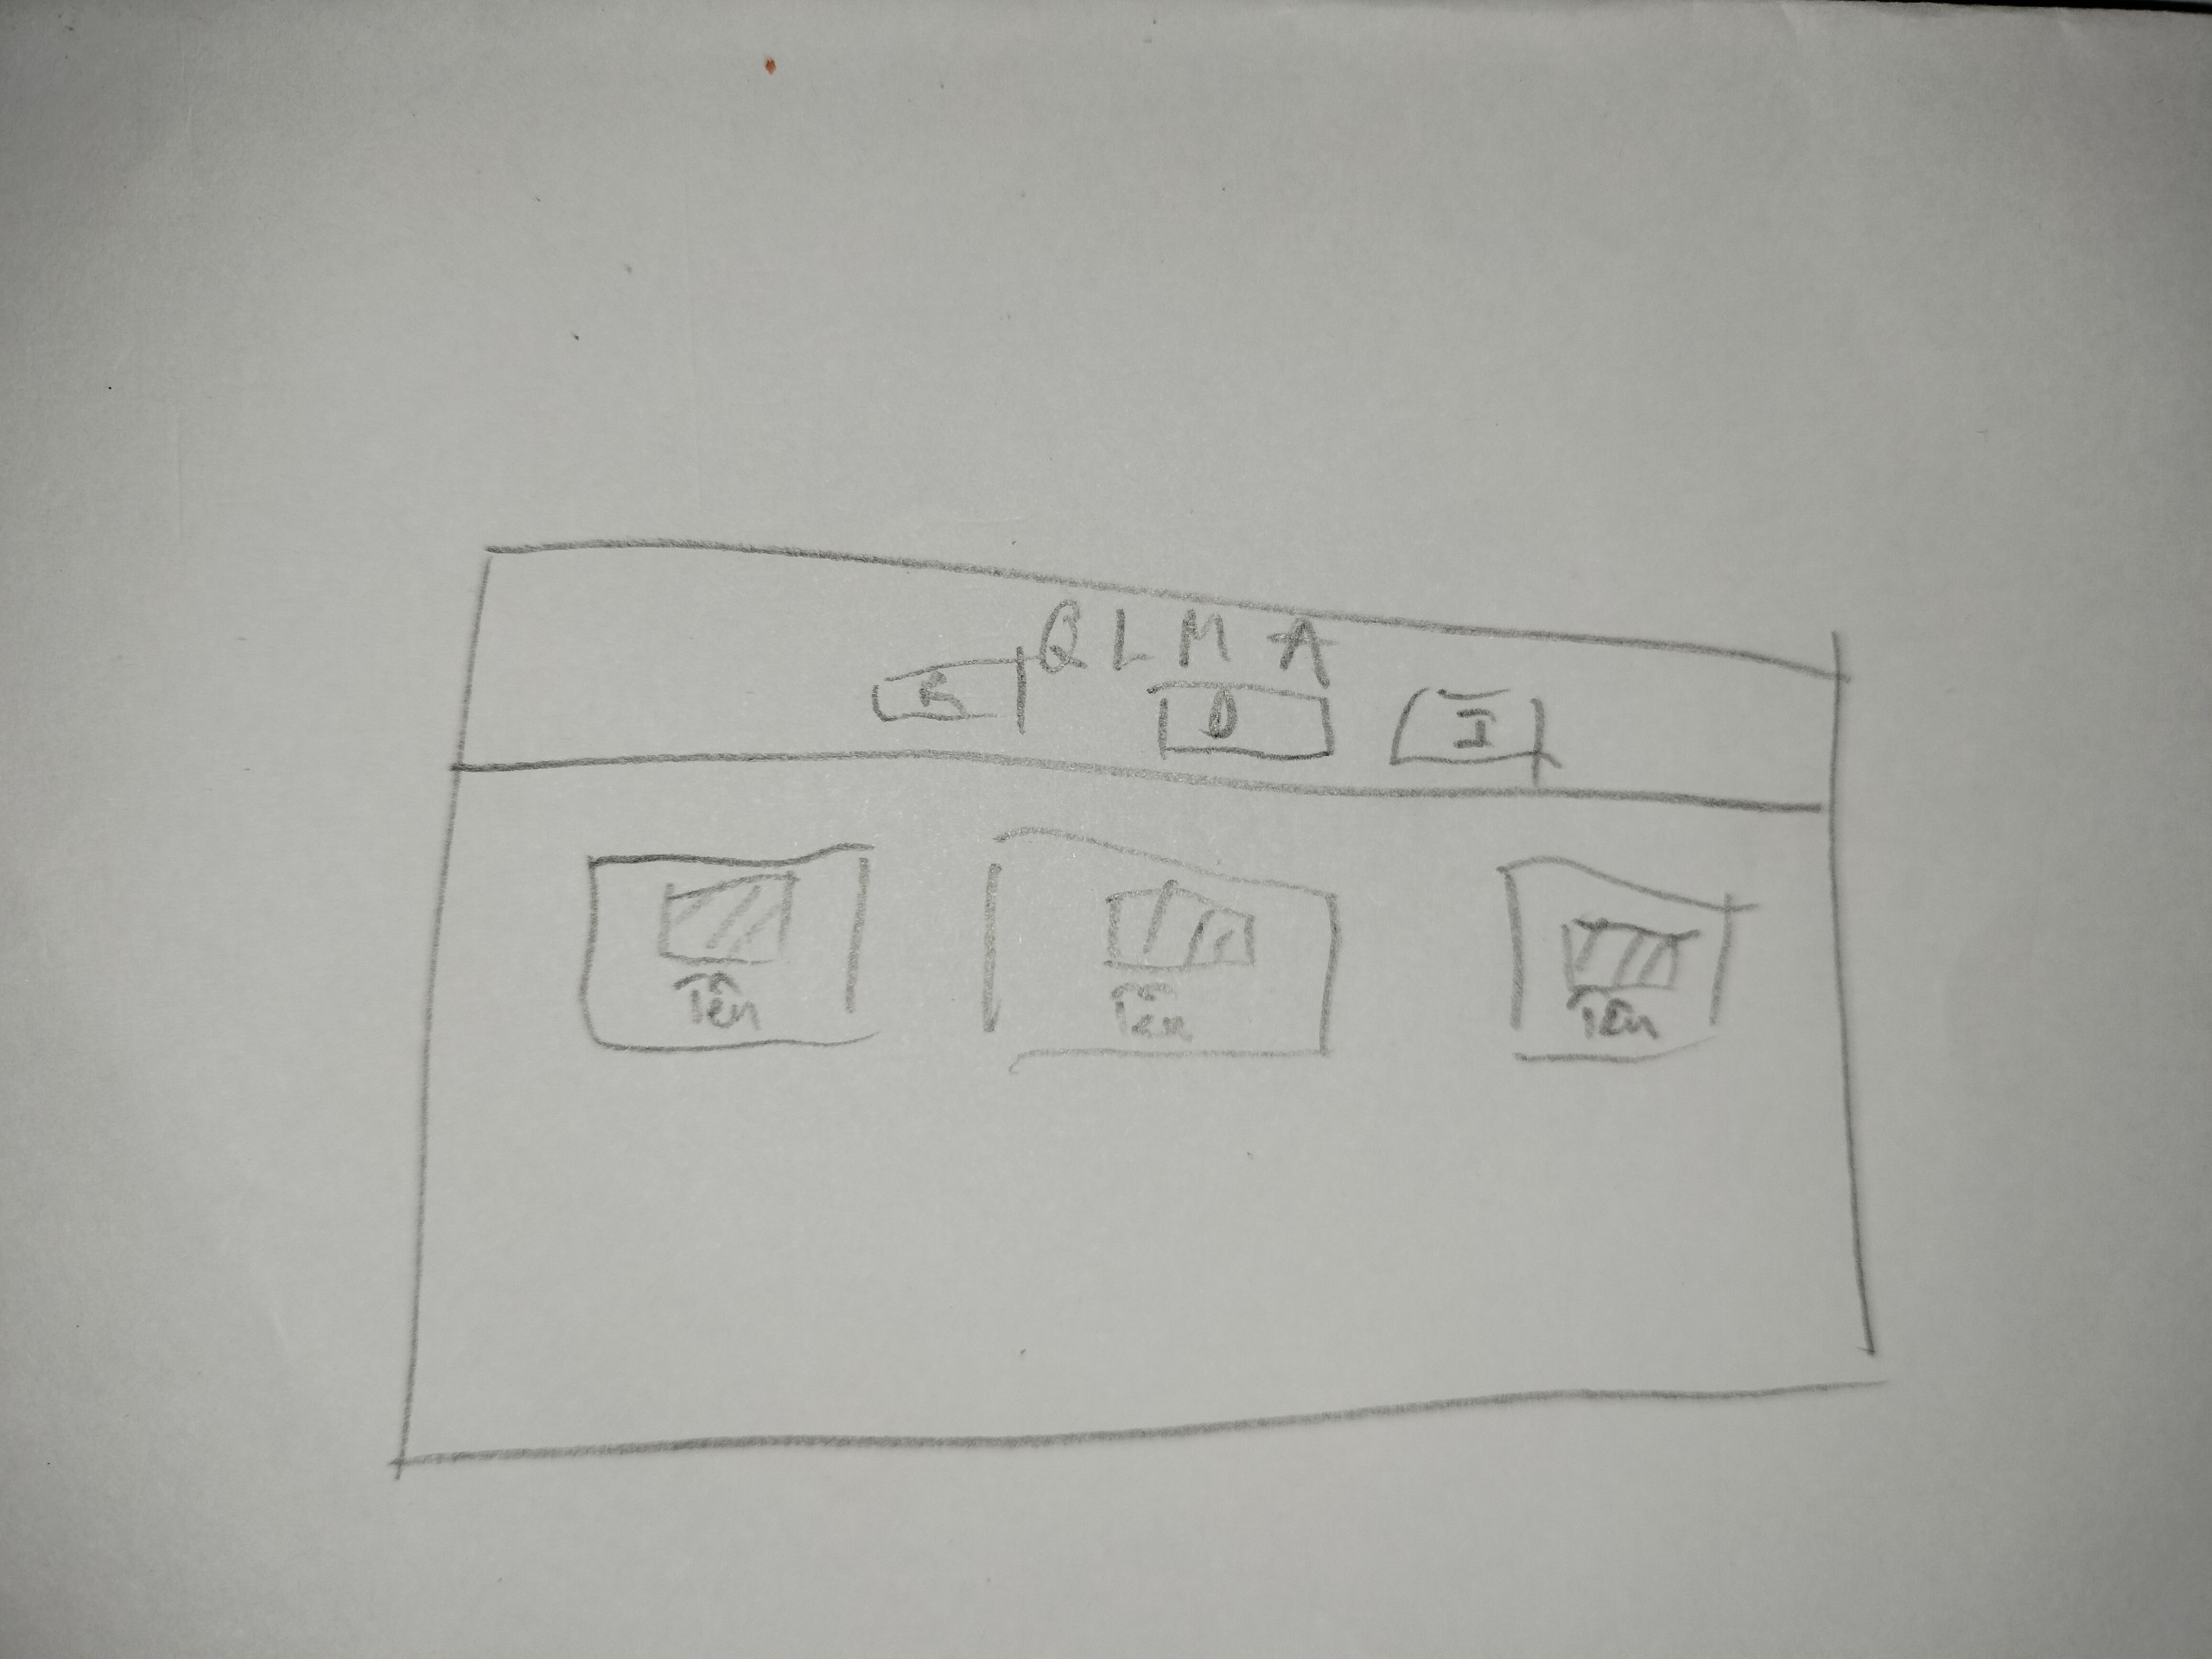 QLMA
D I
Tên Tên Tên